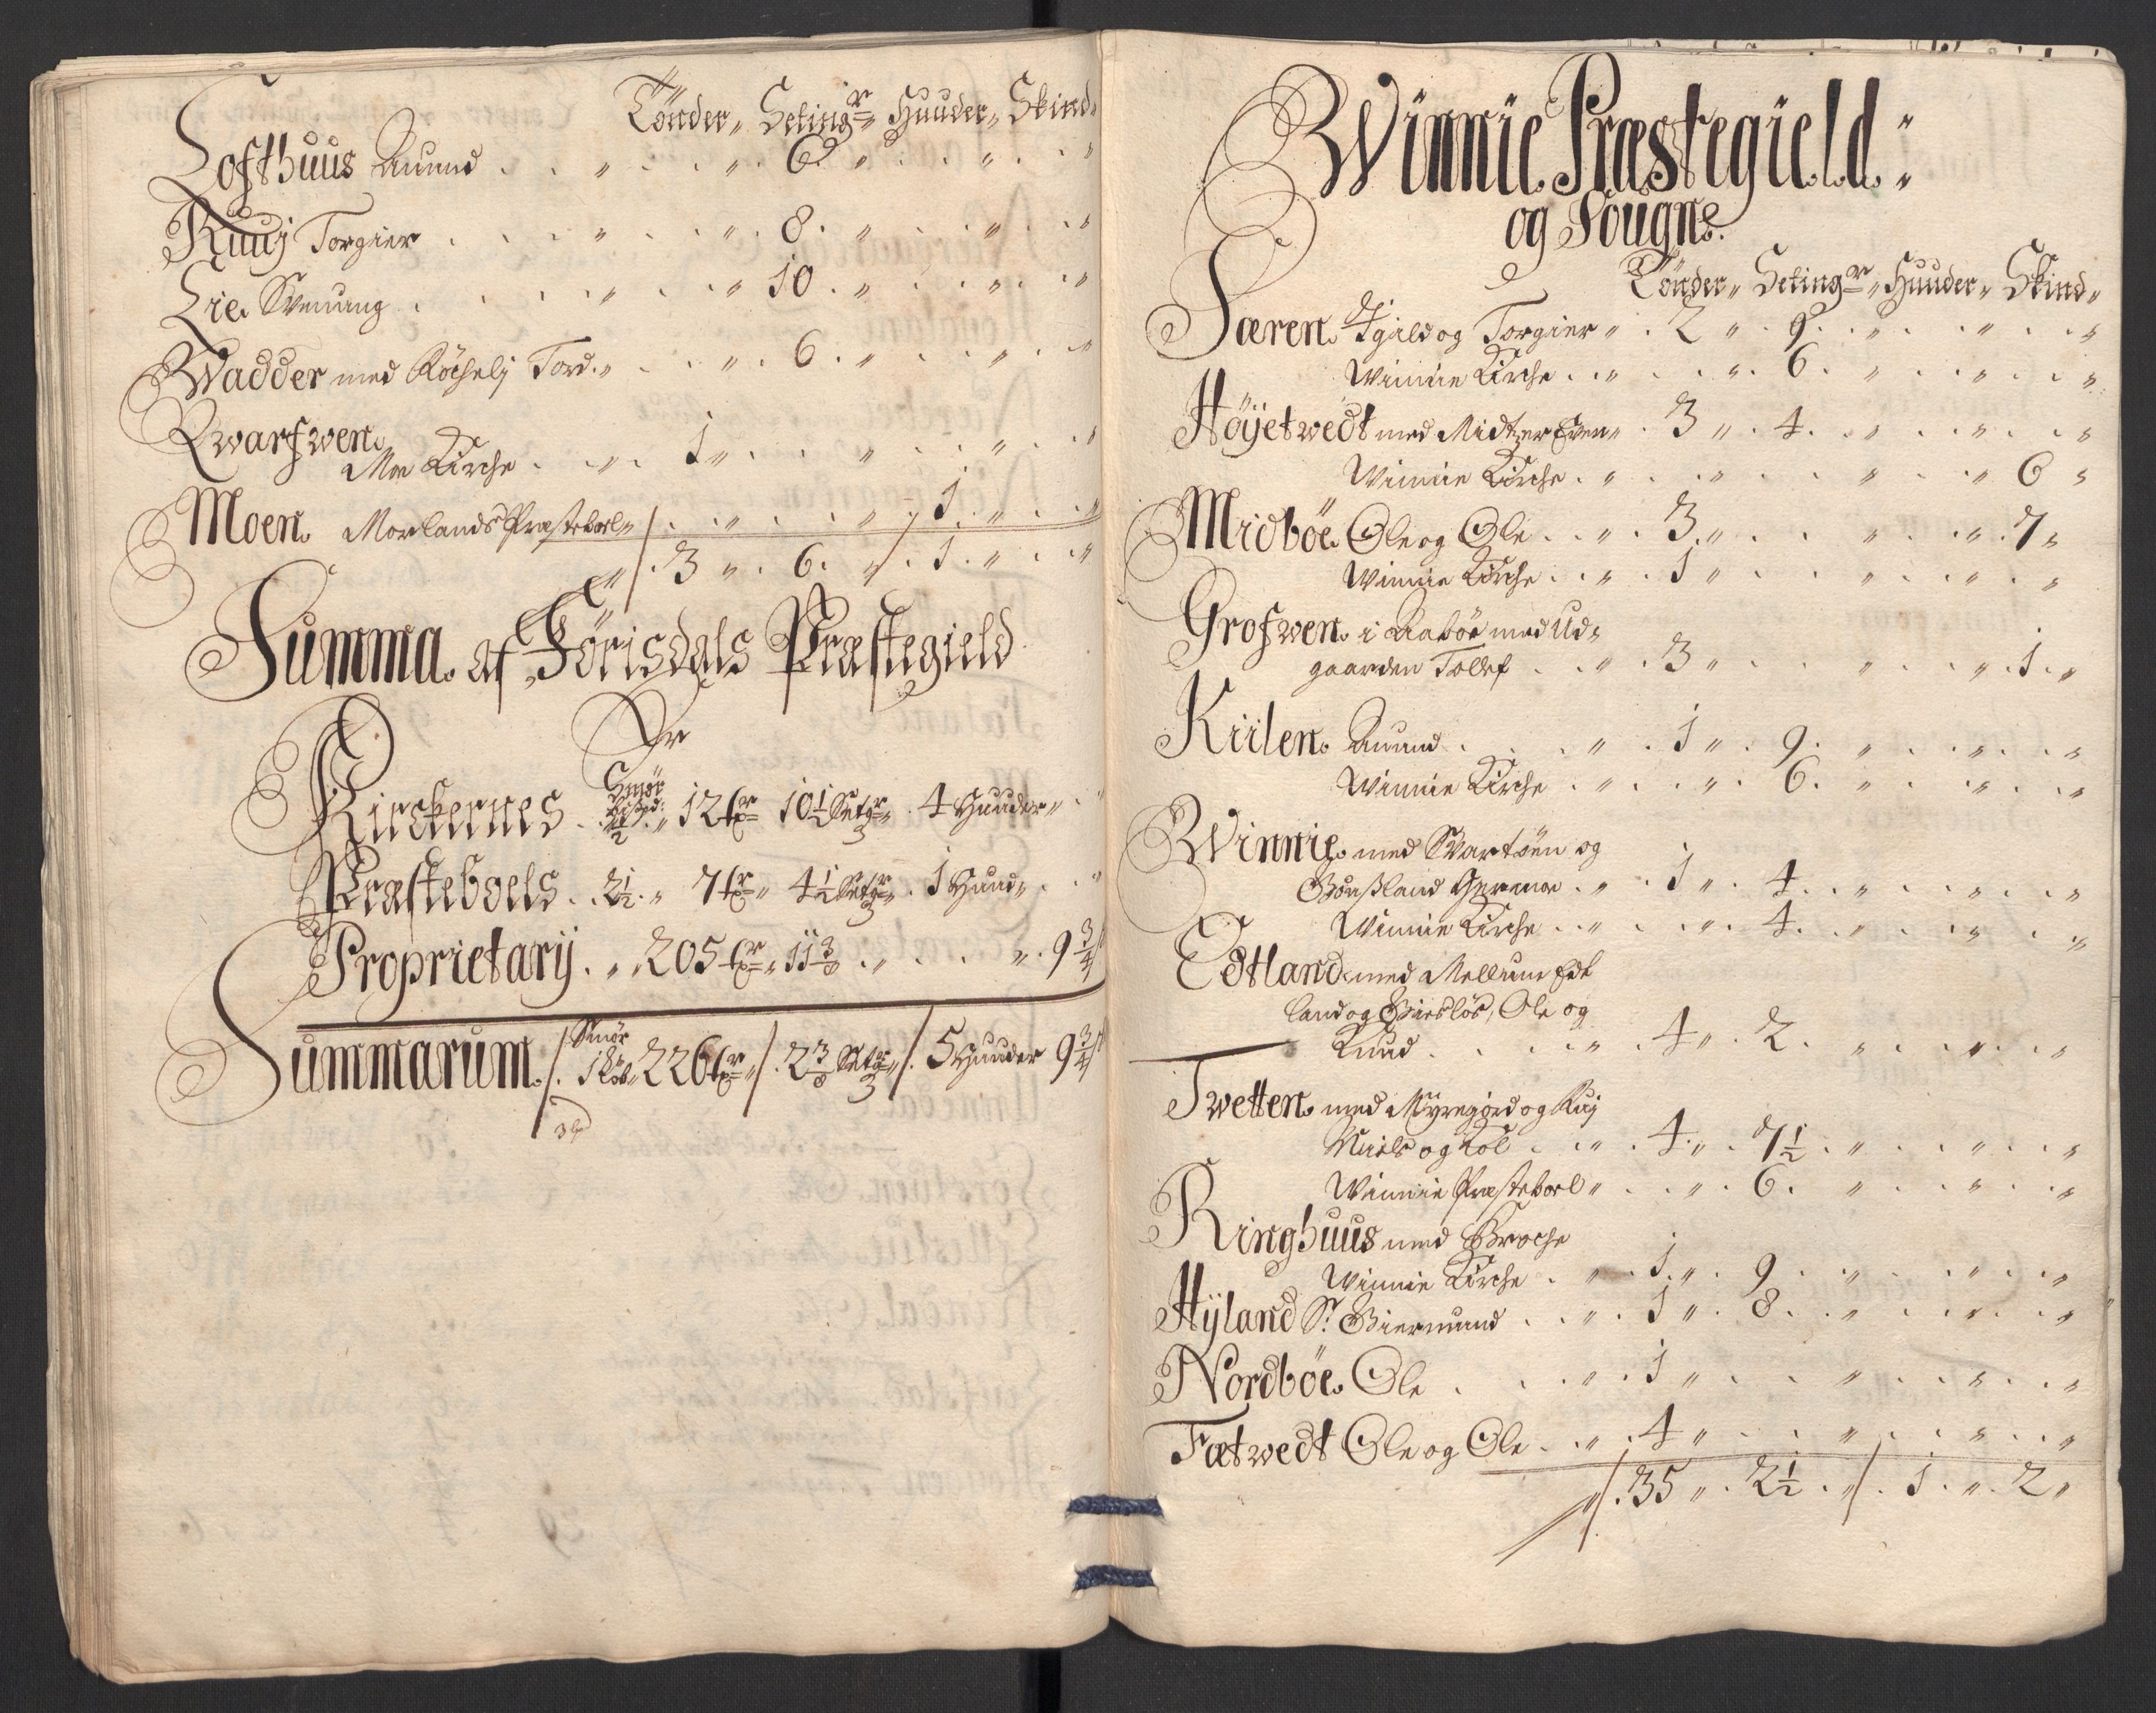 Tönder „ Seting r „ Huuder „ Skind „
Lofthuus Aunund . . „ . . „ . 6 „ . . „ . . „
Ruuj Torgier . . . „ . . „ . 8 . „ . . „ . . „
Lie Swenung . . . . „ . . „ 10 . „ . . „ . . „
Wadder med Röchelj Tord . „ . . . „ . 6 . „ . . „ . . „
Qwarfwen
Moe Kirche . . „ . 1 „ . . . „ . . „ . . „
Moen Morlands Præsteboel „ /. . . „ . . . „ /. 1 . „ . . „
„ /. 3 „ . 6 . „ /. 1 . „ . . „
Summa af Förisdals Præstegield
Er
Kirckernes . Smör Bißpd: 1/2 . „ 12 tr 10 1/2 Setgr „ . 4 Huuder „ . „
Præsteboels . . 2 1/2 . „ 7 tr „ 4 1/2 Setgr „ . 1 Huud „ . . „
Proprietarij . „ 205 tr „ 11 3/8 . „ . . . „ . 9 3/4
Summarum /. Smör 226 tr „ /. 2 3/8 Setgr „ /. 5 Huuder 9 3/4
Winnie Præstegield :
og Sougne
Tönder „ Seting r „ Huuder „ Skind „
Særen. Tgield og Torgier „ . 2 „ . 9 . . „ . . „ . . „
Winnie Kirche . . „ . . . „ . 6 . „ . . . „ . . „
Höyetwedt med Midtzer Even „ . 3 „ . 4 . . „ . . „ . . „
Winnie Kirche . „ . . . „ . . . „ . . „ 6 „
Midböe Ole og Ole . . „ . 3 „ . . . „ . . „ . 7 „
Winnie Kirche . . „ . 1 „ . . . „ . . . „ . . „
Grofwen i Raböe med Ud„
gaarden Tollef . . „ . 3 „ . . . „ . . . „ . 1 . „
Kiilen Aunund . . . „ . 1 „ . 9 . „ . . . „ . . „
Winnie Kirche . „ . . . „ . 6 . „ . . . „ . . „
Winnie med Swartöen og
Börßland Germoe . „ . 1 „ . 4 . . „ . . . „ . . „
Winnie Kirche . . „ . . . „ . 4 . . „ . . „ . . „
Edtland med Mellum Edt
land og Bierlös, Ole og
Knud . . . . „ . 4 „ . 2 . „ . . . „ . . „
Twetten med Myregiord og Ruj
Niels og Kol . . „ . 4 „ . 7 1/2 . „ . . . „ . . „
Winnie Præsteboel „ . . . „ . 6 . „ . . . „ . . „
Ringhuus med Broche
Winnie Kirche . „ . 1 „ . 9 . . „ . . . „ . . „
Hyland Sr. Biermund . . „ . 1 „ . 8 . . „ . . . „ . . „
Nordböe Ole . . . „ . 1 „ . . . „ . . . „ . . „
Fætwedt Ole og Ole . . „ . 4 „ . . . „ . . . „ . . „
„ /. 35 „ . 2 1/2 . „ /. 1 . „ . 2 „